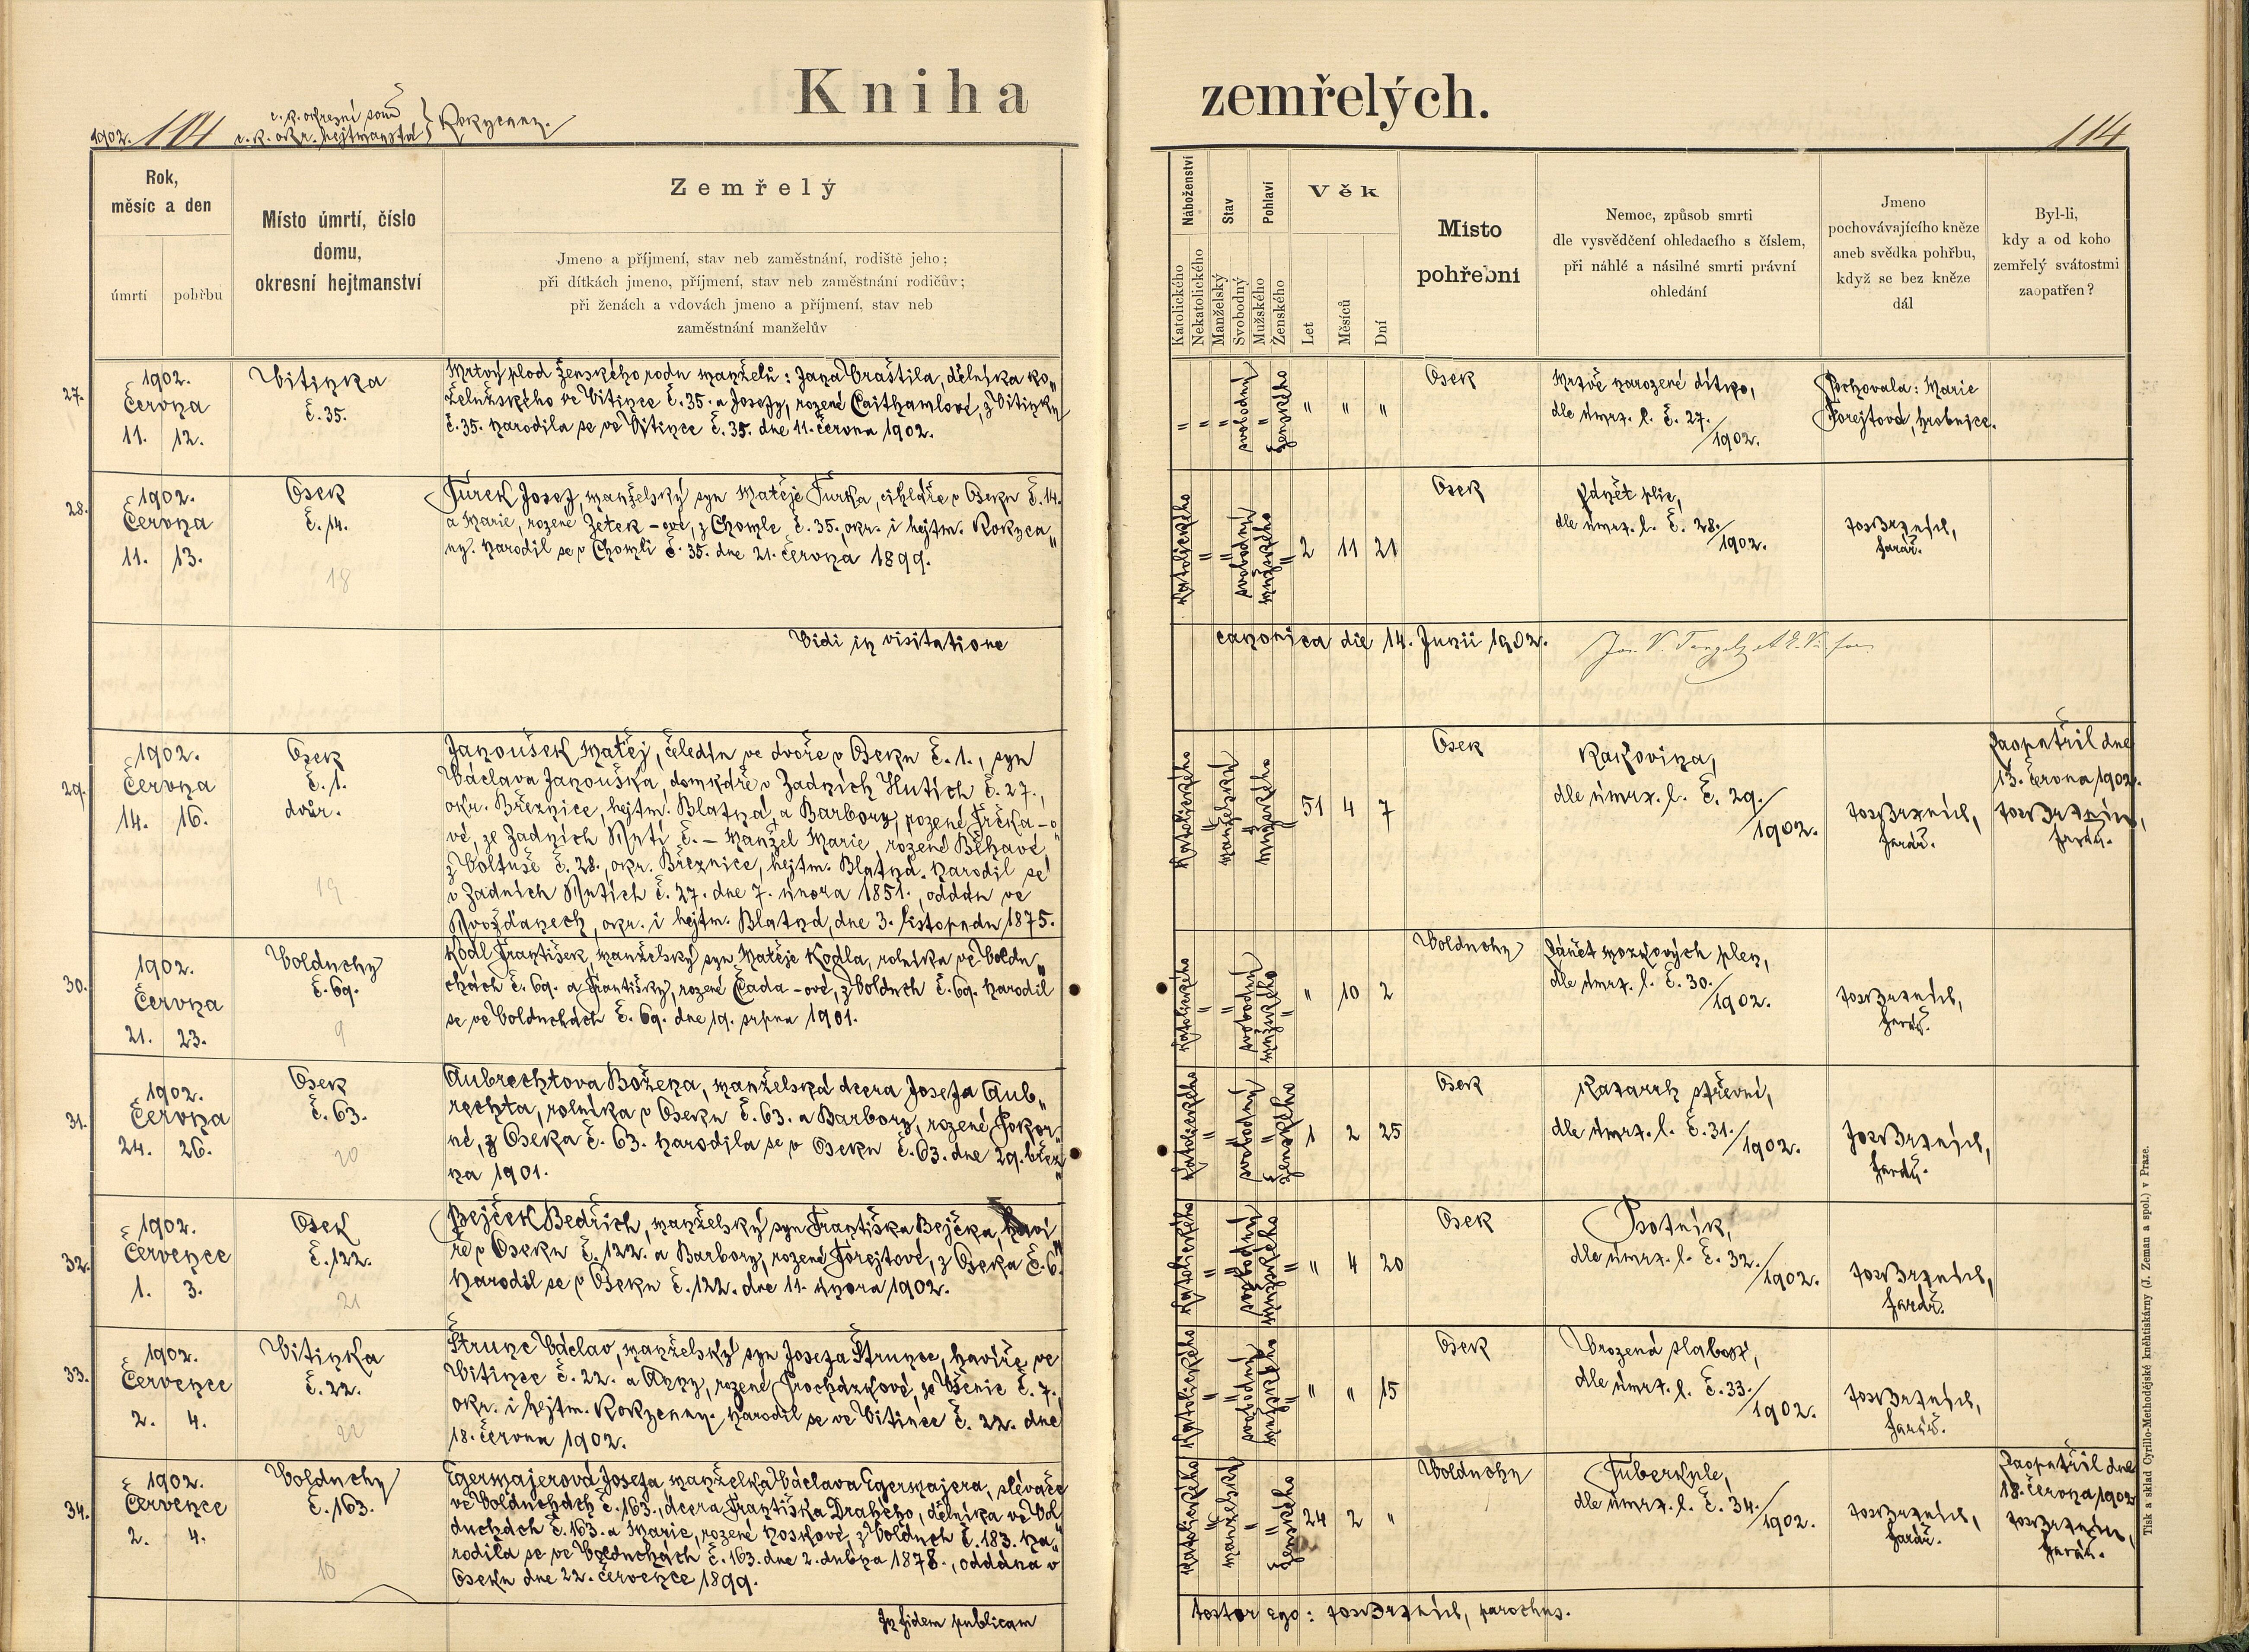 Kniha zemřelých.
1902. 114
c. k. okresní soud
c. k. okr. hejtmanství } Rokycany.
114
Rok,
měsíc a den
úmrtí
pohřbu
Místo úmrtí, číslo
domu,
okresní hejtmanství
Zemřelý
Jmeno a příjmení, stav neb zaměstnání, rodiště jeho;
při dítkách jmeno, příjmení, stav neb zaměstnání rodičův;
při ženách a vdovách jmeno a příjmení, stav neb
zaměstnání manželův
Náboženství
Stav
Pohlaví
Věk
Katolického
Nekatolického
Manželský
Svobodný
Mužského
Ženského
Let
Měsíců
Dní
Místo
pohřební
Nemoc, způsob smrti
dle vysvědčení ohledacího s číslem,
při náhlé a násilné smrti právní
ohledání
Jmeno
pochovávajícího kněze
aneb svědka pohřbu,
když se bez kněze
dál
Byl-li,
kdy a od koho
zemřelý svátostmi
zaopatřen?
27.
1902.
Června
11. 12.
Vitinka
č. 35.
Mrtvý plod ženského rodu manželů: Jana Vraštila, dělníka ko„
želužského ve Vitince č. 35. a Josefy, rozené Caithamlové, z Vitinky
č. 35. Narodila se ve Vitince č. 35. dne 11. června 1902.
" " " svobodný " Ženského " " "
Osek
Mrtvě narozené dítko,
dle úmrt. l. č. 27./1902.
Pochovala: Marie
Forejtová, hrobnice.
28.
1902.
Června
11. 13.
Osek
č. 14.
18
Turek Josef, manželský syn Matěje Turka, cihláře v Oseku č. 14.
a Marie, rozené Zetek-ové, z Chomle č. 35. okr. i hejtm. Rokyca„
ny. Narodil se v Chomli č. 35. dne 21. června 1899.
Katolického " " svobodný mužského " 2 11 21
Osek
Zánět plic,
dle úmrt. l. č. 28./1902.
farář.
Vidi in visitatione
canonica die 14. Junii 1902.
29.
1902.
Června
14. 16.
Osek
č. 1.
dvůr.
19
Janoušek Matěj, čeledín ve dvoře v Oseku č. 1., syn
Václava Janouška, domkáře v Zadních Hutích č. 27.,
okr. Březnice, hejtm. Blatná, a Barbory, rozené Jrčka-o
vé, ze Zadních Hutí č. – Manžel Marie, rozené Běhavé,
z Voltuše č. 28., okr. Březnice, hejtm. Blatná. Narodil se
v Zadních Hutích č. 27. dne 7. února 1851., oddán ve
Hvožďanech, okr. i hejtm. Blatná, dne 3. listopadu 1875.
Katolického " manželský " mužského " 51 4 7
Osek
Rakovina,
dle úmrt. l. č. 29./1902.
farář.
Zaopatřil dne
13. června 1902.
farář.
30.
1902.
Června
21. 23.
Volduchy
č. 69.
9
Kodl František, manželský syn Matěje Kodla, rolníka ve Voldu„
chách č. 69. a Františky, rozené Čada-ové, z Volduch č. 69. Narodil
se ve Volduchách č. 69. dne 19. srpna 1901.
Katolického " " svobodný mužského " " 10 2
Volduchy
Zánět mozkových plen,
dle úmrt. l. č. 30./1902.
farář.
31.
1902.
Června
24. 26.
Osek
č. 63.
20
Aubrechtova Božena, manželská dcera Josefa Aub„
rechta, rolníka v Oseku č. 63. a Barbory, rozené Pokor„
né, z Oseka č. 63. Narodila se v Oseku č. 63. dne 29. břez„
na 1901.
Katolického " " svobodný " Ženského 1 2 25
Osek
Katarrh střevní,
dle úmrt. l. č. 31./1902.
farář.
32.
1902.
Července
1. 3.
Osek
č. 122.
21
Bejček Bedřich, manželský syn Františka Bejčka, haví„
ře v Oseku č. 122. a Barbory, rozené Forejtové, z Oseka č. 6.
Narodil se v Oseku č. 122. dne 11. února 1902.
Katolického " " svobodný mužského " " 4 20
Osek
Psotník,
dle úmrt. l. č. 32./1902.
farář.
33.
1902.
Července
2. 4.
Vitinka
č. 22.
22
Štrunc Václav, manželský syn Josefa Štrunce, havíře ve
Vitince č. 22. a Anny, rozené Procházkové, ze Všenic č. 7.,
okr. i hejtm. Rokycany. Narodil se ve Vitince č. 22. dne
18. června 1902.
Katolického " " svobodný mužského " " " 15
Osek
Vrozená slabost,
dle úmrt. l. č. 33./1902.
farář.
34.
1902.
Července
2. 4.
Volduchy
č. 163.
10
Egermajerová Josefa, manželka Václava Egermajera, slévače
ve Volduchách č. 163., dcera Františka Drahého, dělníka ve Vol
duchách č. 163. a Marie, rozené Noskové, z Volduch č. 183. Na„
rodila se ve Volduchách č. 163. dne 2. dubna 1878., oddána v
Oseku dne 22. července 1899.
Katolického " manželský " " Ženského 24 2 "
Volduchy
Tuberkule,
dle úmrt. l. č. 34./1902.
farář.
Zaopatřil dne
18. června 1902
farář.
In fidem publicam
testor ego: parochus.
Tisk a sklad Cyrillo-Methodějské kněhtiskárny (J. Zeman a spol.) v Praze.